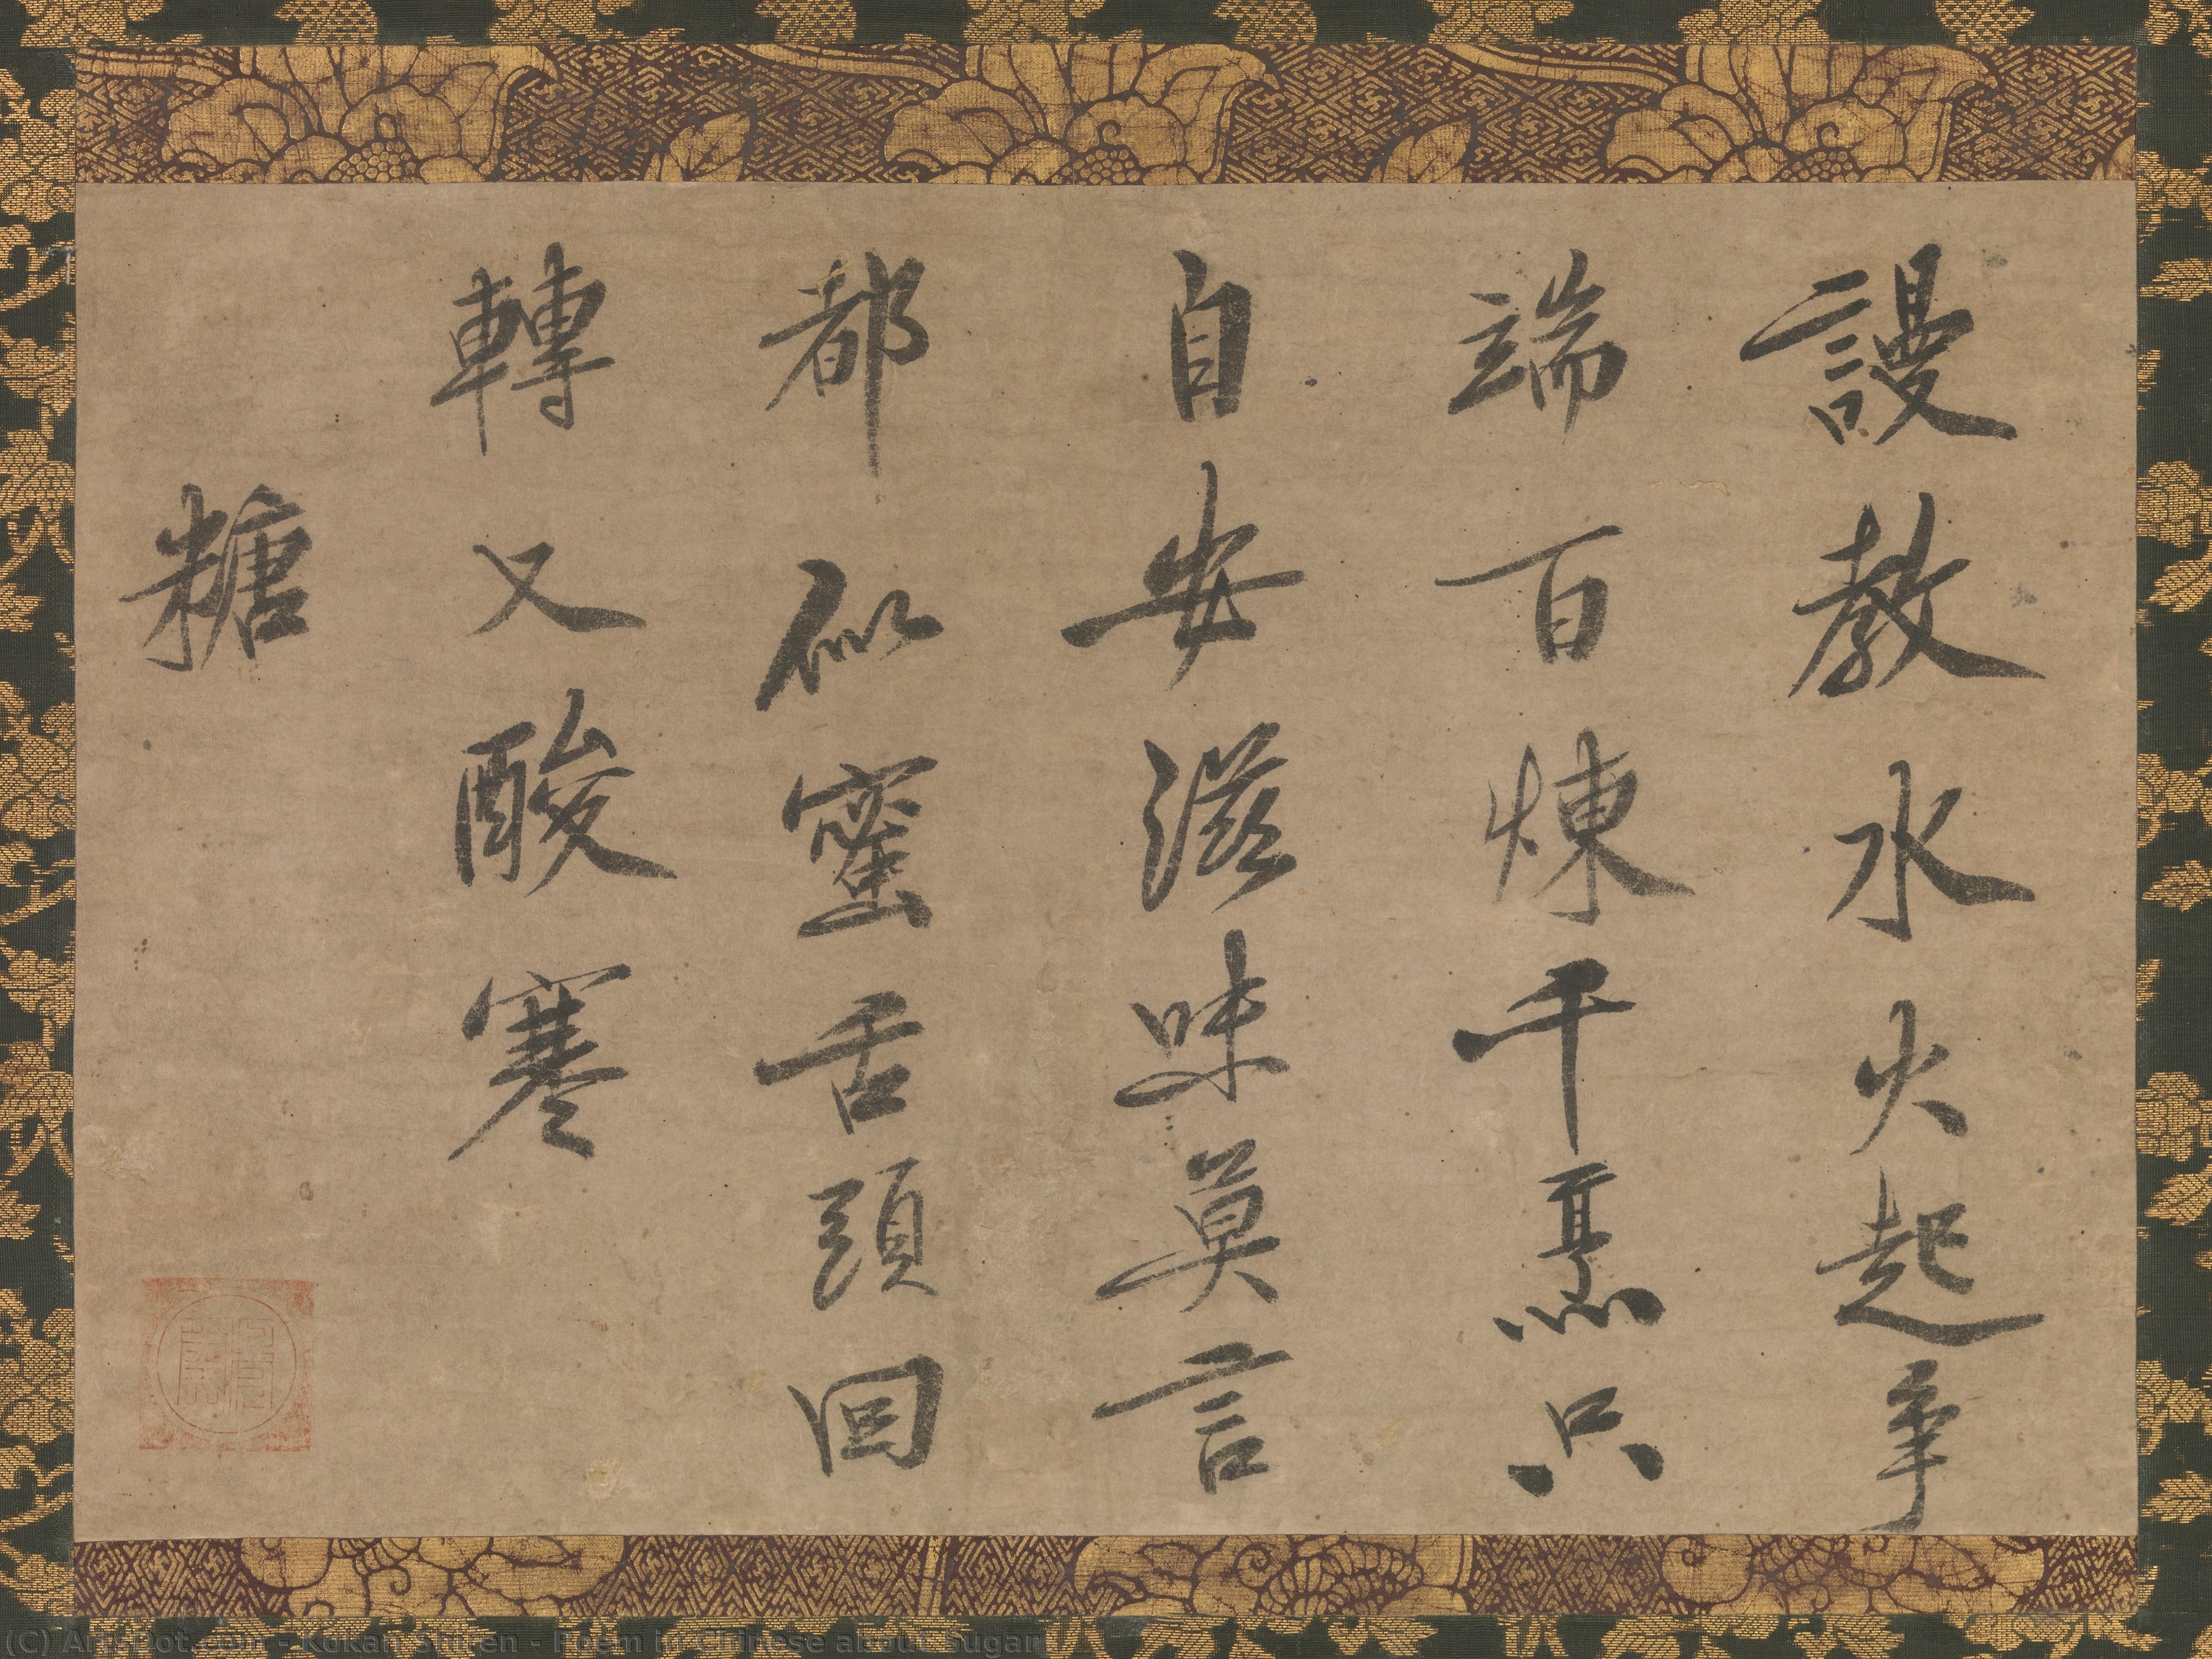 謾教水火起爭
端百煉千烹只
自安滋味莫言
都似蜜舌頭回
轉又酸寒
糖
(C) ArtsDot.com - Kokan Shiren - Poem in Chinese about Sugar